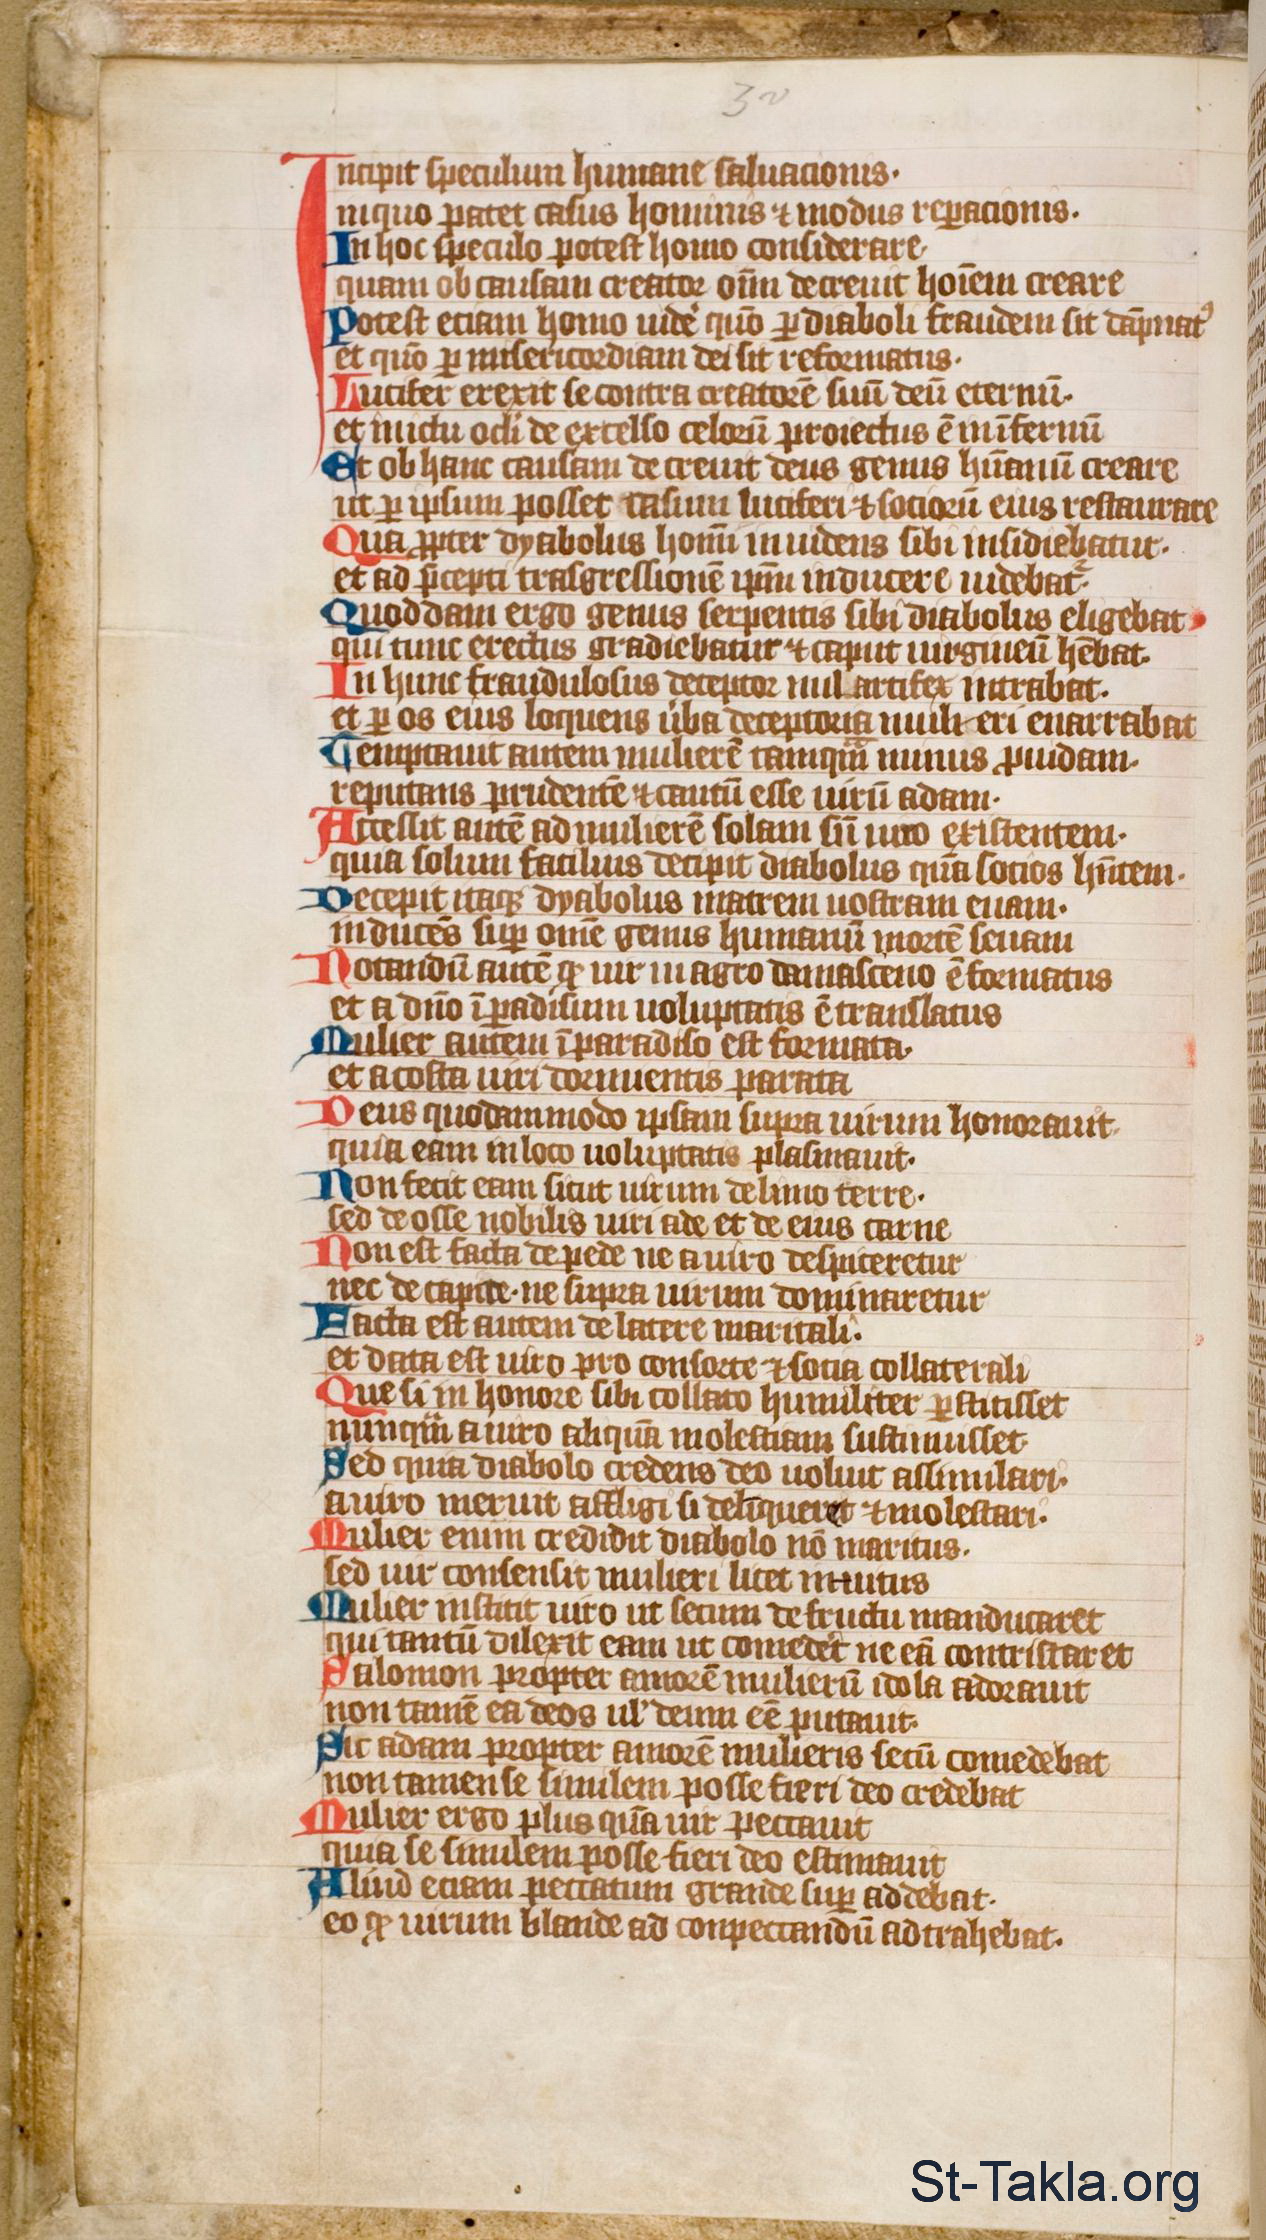 3v
Incipit speculum humane saluacionis.
in quo patet casus hominis ⁊ modus reparacionis.
In hoc speculo potest homo considerare
quam ob causam creator oim̄ decreuit hoīem creare
Potest eciam homo uidē quō ꝑ diaboli fraudem sit dāpnatꝰ
et quō ꝑ misericordiam dei sit reformatus.
Lucifer erexit se contra creatorē suū deū eternū.
et nictu ocli de excelso celorū proiectus ē in īfernū
Et ob hanc causam decreuit deus genus hūanū creare
ut ꝑ ipsum posset casum luciferi ⁊ sociorū eius restaurare
Qua ꝓpter dyabolus homī inuidens sibi insidiebatur.
et ad p̄cepti trāsgressionē ipm̄ inducere uidebat᷑.
Quoddam ergo genus serpentis sibi diabolus eligebat
qui tunc erectus gradiebatur ⁊ caput uirgineū hēbat.
In hunc fraudulosus deceptor mul artifex intrabat.
et ꝑ os eius loquens ūba deceptoria mulieri enarrabat
Temptauit autem mulierē tamqm̄ minus ꝓuidam.
reputans prudentē ⁊ cautū esse uirū adam.
Accessit autē ad mulierē solam sn̄ uiro existentem.
quia solum facilius decipit diabolus quā socios hn̄tem.
Decepit itaqꝫ dyabolus matrem nostram euam.
inducēs suꝑ omē genus humanū mortē seuam
Notandū autē ꝙ uir in agro damasceno ē formatus
et a dn̄o ī ꝑadisum uoluptatis ē translatus
Mulier autem ī paradiso est formata.
et a costa uiri dormientis parata
Deus quodammodo ipsam supra uirum honorauit.
quia eam in loco uoluptatis plasmauit.
Non fecit eam sicut uirum de limo terre.
sed de osse nobilis uiri ade et de eius carne
Non est facta de pede ne a uiro despiceretur
nec de capite. ne supra uirum dominaretur
Facta est autem de latere maritali.
et data est uiro pro consorte ⁊ socia collaterali
Que si in honore sibi collato humiliter ꝑstitisset
nunqm̄ a uiro aliquā molestiam sustinuisset
Sed quia diabolo credens deo uoluit assimulari.
a uiro meruit affligi si delīqueret ⁊ molestari.
Mulier enim credidit diabolo nō maritus.
sed uir consensit mulieri licet inuitus
Mulier institit uiro ut secum de fructu manducaret
qui tantū dilexit eam ut comederet ne eā contristaret
Salomon propter amorē mulierū idola adorauit
non tamē ea deos ul' deum eē putauit.
Sic adam propter amorē mulieris secū comedebat
non tamen se similem posse fieri deo credebat
Mulier ergo plus quā uir peccauit
quia se similem posse fieri deo estimauit
Aliud eciam peccatum grande suꝑ addebat.
eo ꝙ uirum blande ad conpeccandū adtrahebat.
St-Takla.org